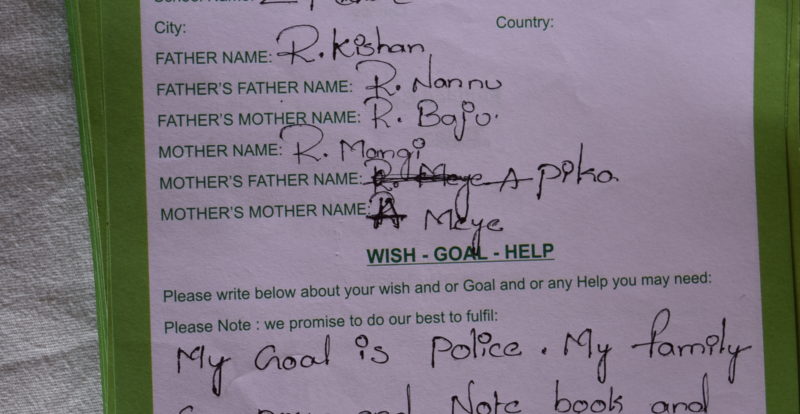 City: Country:
FATHER NAME: R. Kishan
FATHER'S FATHER NAME: R. Nannu
FATHER'S MOTHER NAME: R. Baju.
MOTHER NAME: R. Mangi
MOTHER'S FATHER NAME: R. Meye A pika
MOTHER'S MOTHER NAME: A Meye
WISH - GOAL - HELP
Please write below about your wish and or Goal and or any Help you may need:
Please Note : we promise to do our best to fulfil:
My Goal is Police. My family
and Note book and